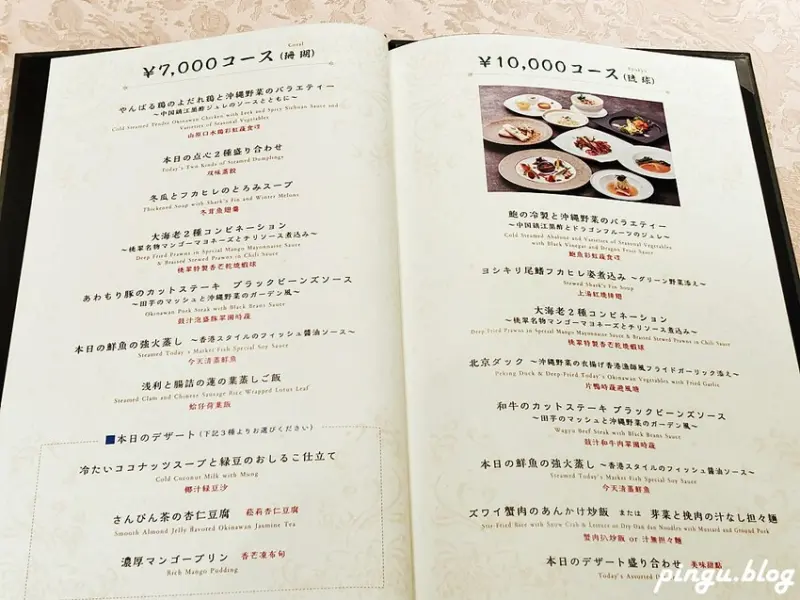 Coral
¥7,000コース(珊瑚)
やんばる鶏のよだれ鶏と沖縄野菜のバラエティー
～中国鎮江黒酢ジュレのソースとともに～
Cold Steamed Tender Okinawan Chicken with Leek and Spicy Sichuan Sauce and
Varieties of Seasonal Vegetables
山原口水鶏彩虹蔬食
本日の点心2種盛り合わせ
Today's Two Kinds of Steamed Dumplings
双味蒸餃
冬瓜とフカヒレのとろみスープ
Thickened Soup with Shark's Fin and Winter Melons
冬茸魚翅羹
大海老2種コンビネーション
～桃翠名物マンゴーマヨネーズとチリソース煮込み～
Deep Fried Prawns in Special Mango Mayonnaise Sauce
& Braised Stewed Prawns in Chili Sauce
桃翠特製香芒乾焼蝦球
あわもり豚のカットステーキ ブラックビーンズソース
～田芋のマッシュと沖縄野菜のガーデン風～
Okinawan Pork Steak with Black Beans Sauce
豉汁泡盛豚翠園時蔬
本日の鮮魚の強火蒸し ～香港スタイルのフィッシュ醤油ソース～
Steamed Today's Market Fish Special Soy Sauce
今天清蒸鮮魚
浅利と腸詰の蓮の葉蒸しご飯
Steamed Clam and Chinese Sausage Rice Wrapped Lotus Leaf
蛤仔荷葉飯
■本日のデザート(下記3種よりお選びください)
冷たいココナッツスープと緑豆のおしるこ仕立て
Cold Coconut Milk with Mung
椰汁緑豆沙
さんぴん茶の杏仁豆腐 茘莉杏仁豆腐
Smooth Almond Jelly flavored Okinawan Jasmine Tea
濃厚マンゴープリン 香芒凍布甸
Rich Mango Pudding
Ryukyu
¥10,000コース(琉球)
鮑の冷製と沖縄野菜のバラエティー
～中国鎮江黒酢とドラゴンフルーツのジュレ～
Cold Steamed Abalone and Varieties of Seasonal Vegetables
with Black Vinegar and Dragon Fruit Sauce
鮑魚彩虹蔬食
ヨシキリ尾鰭フカヒレ姿煮込み ～グリーン野菜添え～
Stewed Shark's Fin Soup
上湯紅焼排翅
大海老2種コンビネーション
～桃翠名物マンゴーマヨネーズとチリソース煮込み～
Deep Fried Prawns in Special Mango Mayonnaise Sauce & Braised Stewed Prawns in Chili Sauce
桃翠特製香芒乾焼蝦球
北京ダック ～沖縄野菜の衣揚げ香港漁師風フライドガーリック添え～
Peking Duck & Deep-Fried Today's Okinawan Vegetables with Fried Garlic
片鴨時蔬避風塘
和牛のカットステーキ ブラックビーンズソース
～田芋のマッシュと沖縄野菜のガーデン風～
Wagyu Beef Steak with Black Beans Sauce
豉汁和牛肉翠園時蔬
本日の鮮魚の強火蒸し ～香港スタイルのフィッシュ醤油ソース～
Steamed Today's Market Fish Special Soy Sauce
今天清蒸鮮魚
ズワイ蟹肉のあんかけ炒飯 または 芽菜と挽肉の汁なし担々麺
Stir-Fried Rice with Snow Crab & Lettuce or Dry Dan dan Noodles with Mustard and Ground Pork
蟹肉扒炒飯 or 汁無担々麺
本日のデザート盛り合わせ 美味甜點
Today's Assorted
pingu.blog